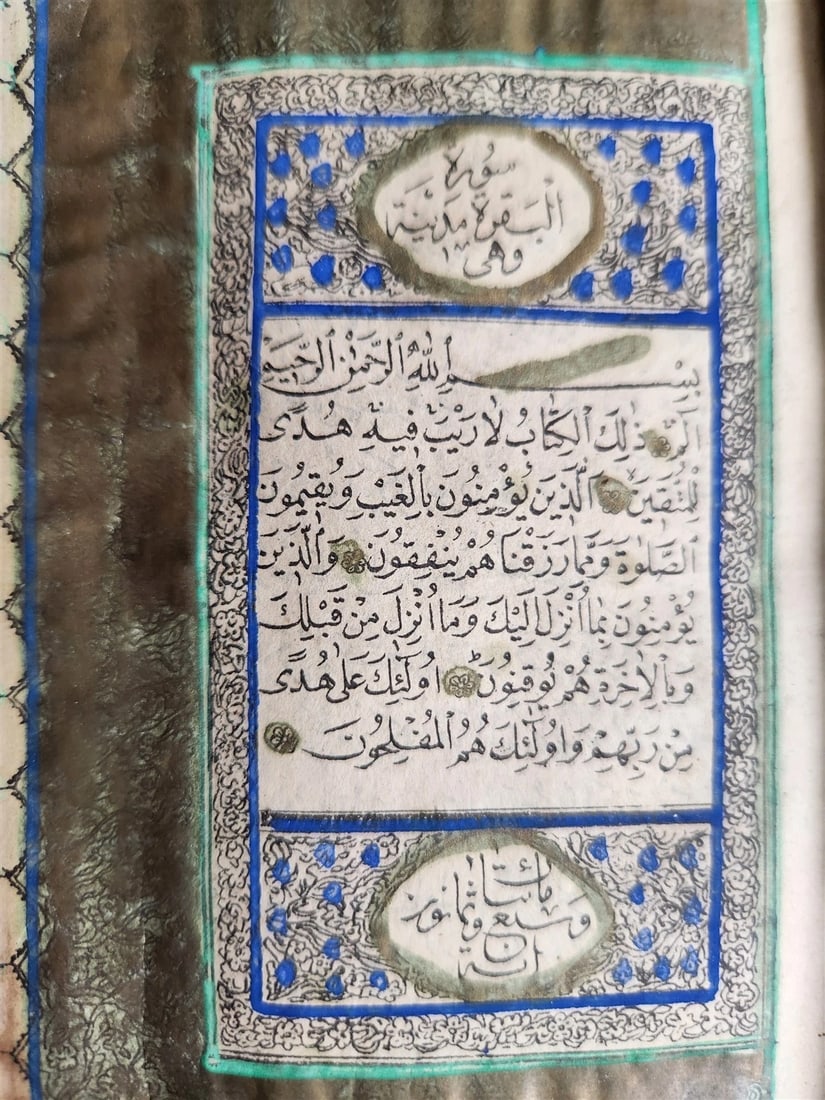 سُورَةُ
الْبَقَرَةِ مَدَنِيَّةٌ
وَهِىَ
بِسْمِ ٱللّٰهِ ٱلرَّحْمٰنِ ٱلرَّحِيمِ
الٓمٓ ذٰلِكَ ٱلْكِتَابُ لَا رَيْبَ فِيهِ هُدًى
لِلْمُتَّقِينَ ٱلَّذِينَ يُؤْمِنُونَ بِالْغَيْبِ وَيُقِيمُونَ
ٱلصَّلٰوةَ وَمِمَّا رَزَقْنَاهُمْ يُنْفِقُونَ وَٱلَّذِينَ
يُؤْمِنُونَ بِمَا اُنْزِلَ اِلَيْكَ وَمَا اُنْزِلَ مِنْ قَبْلِكَ
وَبِالْاٰخِرَةِ هُمْ يُوقِنُونَ اُولٰٓئِكَ عَلٰى هُدًى
مِنْ رَبِّهِمْ وَاُولٰٓئِكَ هُمُ ٱلْمُفْلِحُونَ
مائتان
وسبع وثمانون
اية